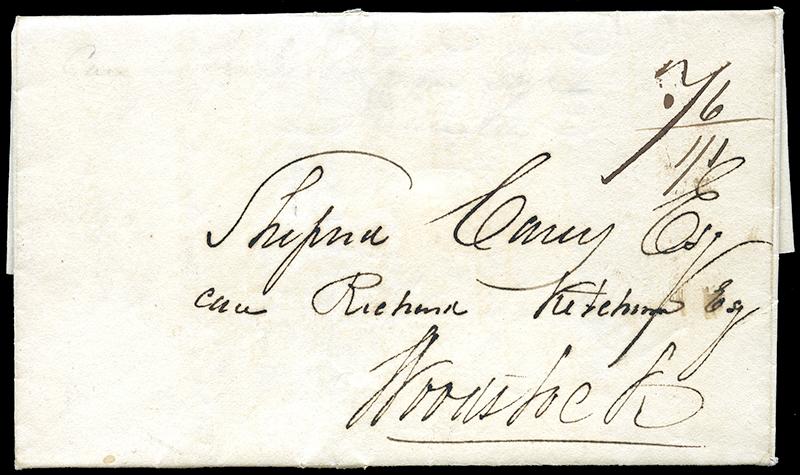 7/6
1/1
Carey Esq
care Richard Ketchum Esq
Woodstock